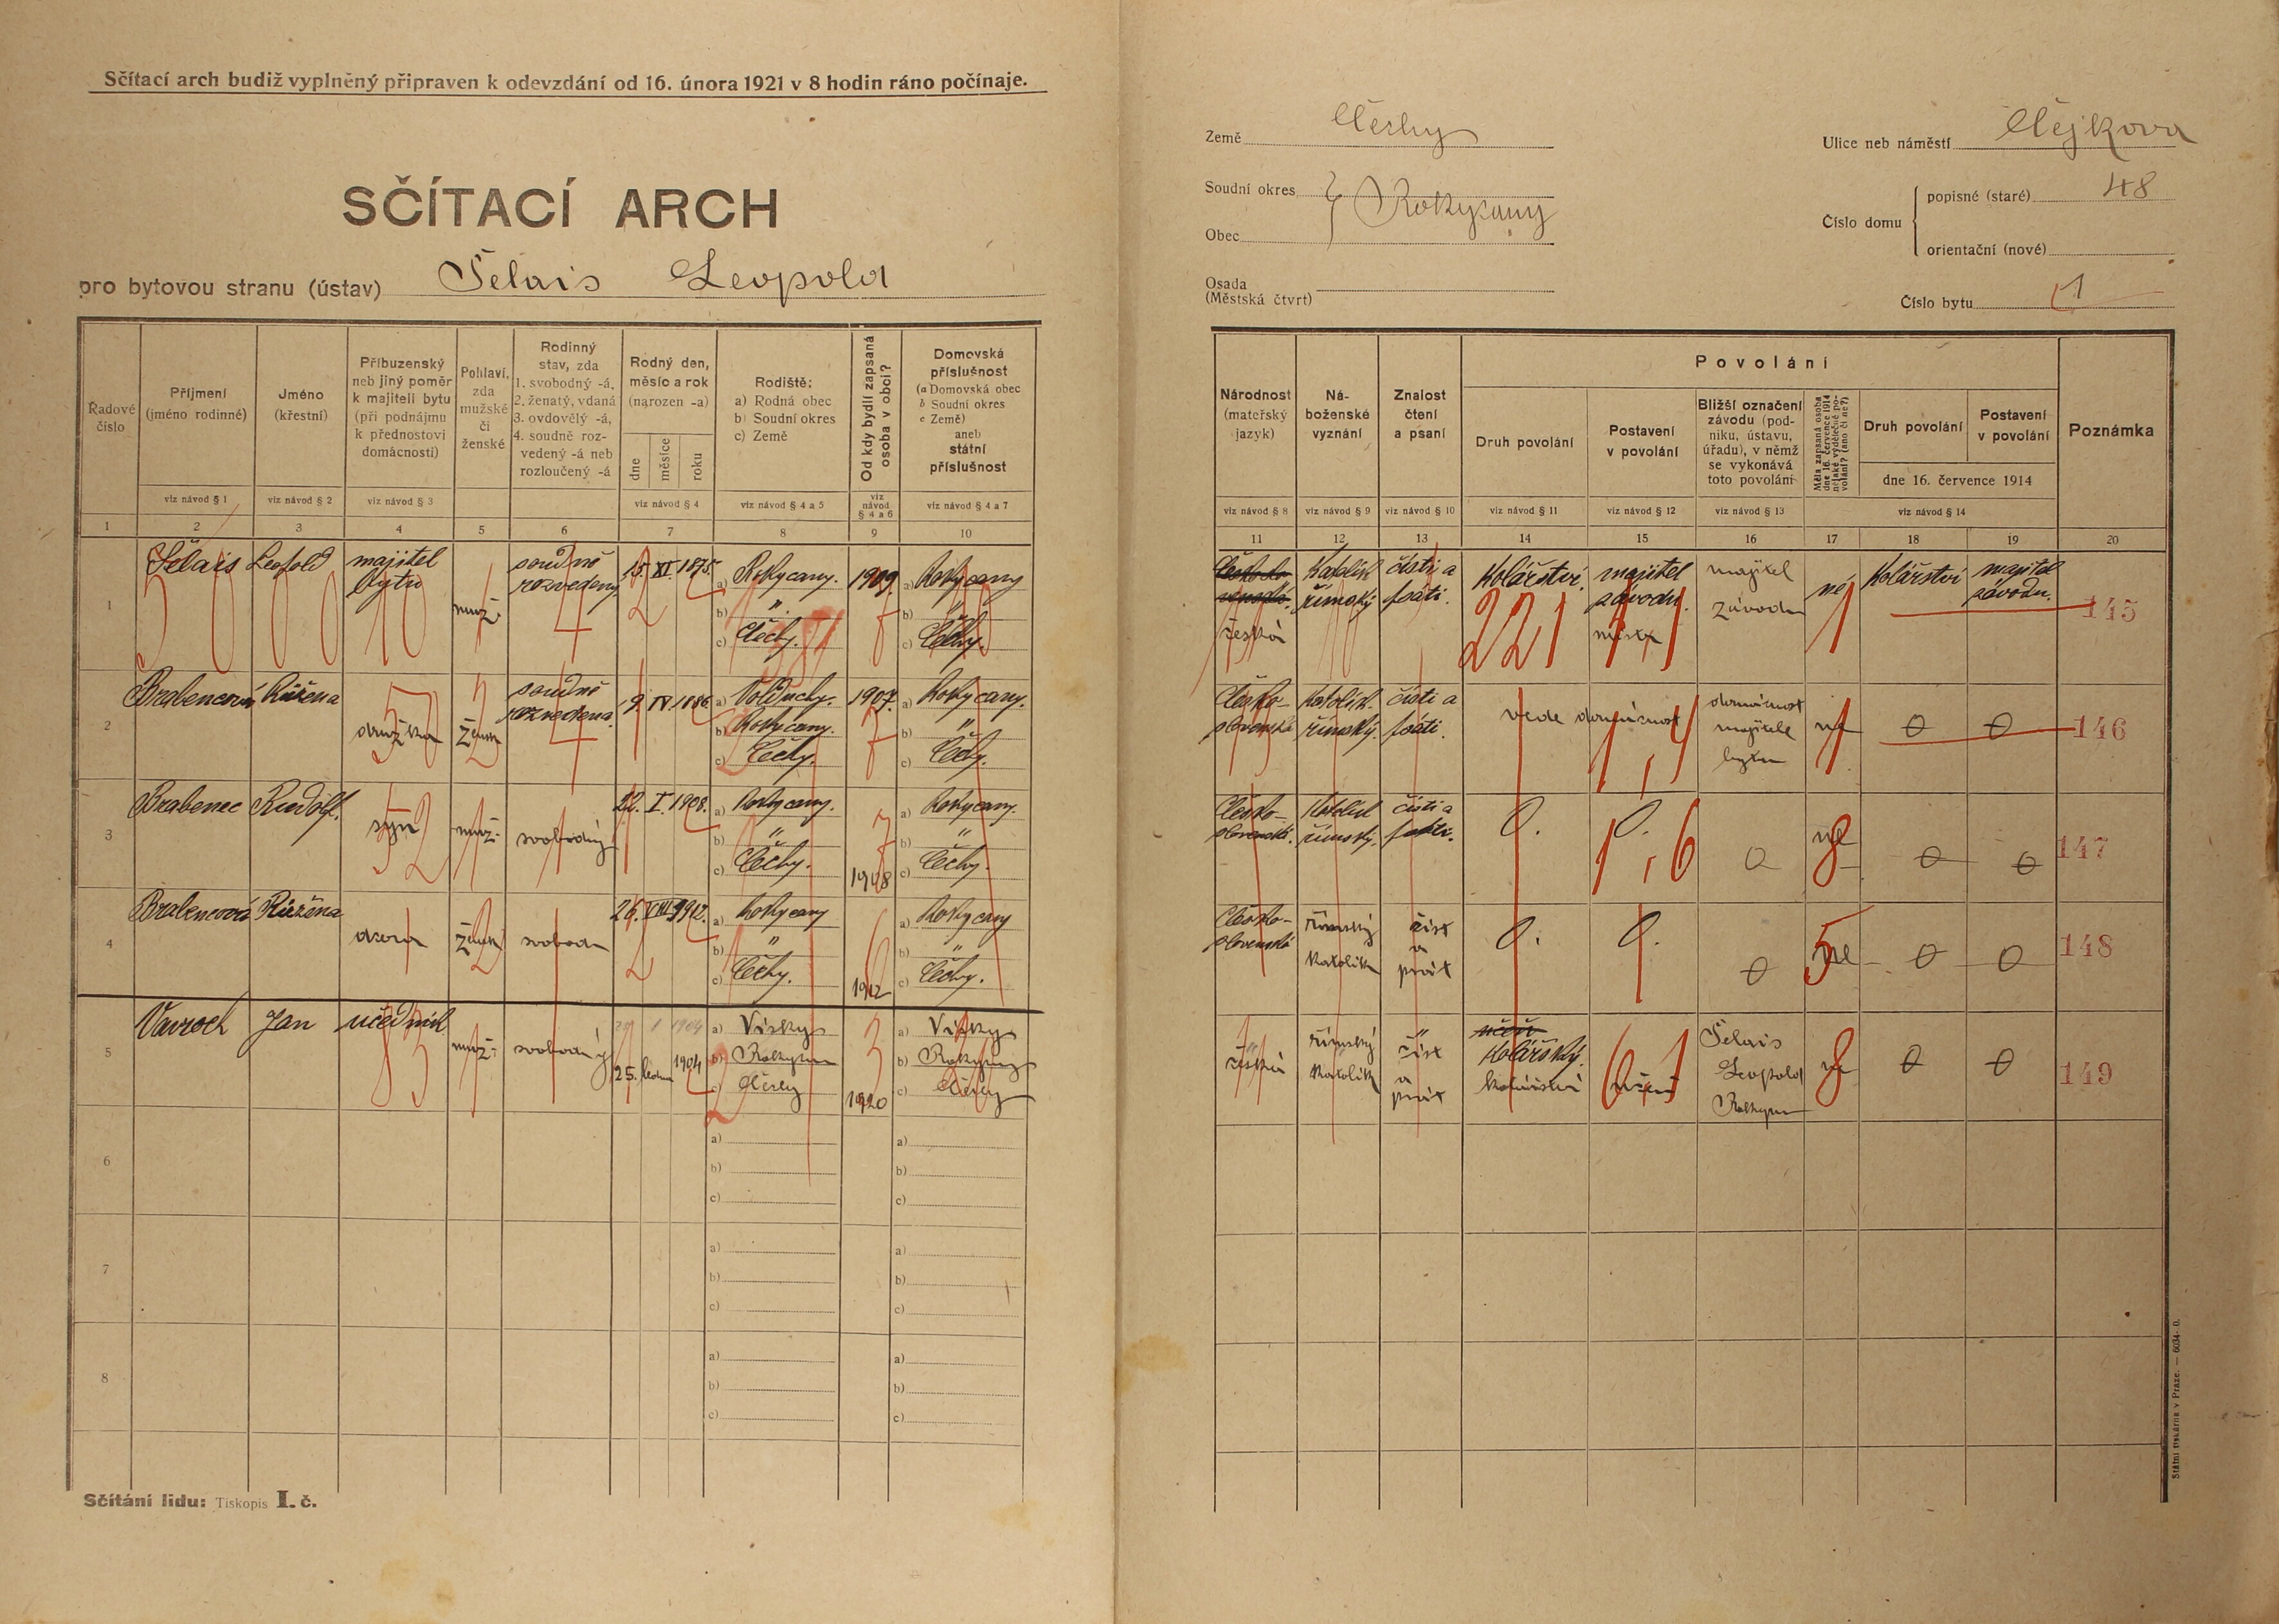 Sčítací arch budiž vyplněný připraven k odevzdání od 16. února 1921 v 8 hodin ráno počínaje.
SČÍTACÍ ARCH
pro bytovou stranu (ústav) Šelais Leopold
Země Čechy
Soudní okres
Obec Rokycany
Osada
(Městská čtvrt)
Ulice neb náměstí Čejkova
Číslo domu
popisné (staré) 48
orientační (nové)
Číslo bytu 1
Řadové číslo
Příjmení (jméno rodinné)
Jméno (křestní)
Příbuzenský neb jiný poměr k majiteli bytu (při podnájmu k přednostovi domácnosti)
Pohlaví, zda mužské či ženské
Rodinný stav, zda 1. svobodný -á, 2. ženatý, vdaná 3. ovdovělý -á, 4. soudně rozvedený -á neb rozloučený -á
Rodný den, měsíc a rok (narozen -a)
dne měsíce roku
Rodiště:
a) Rodná obec
b) Soudní okres
c) Země
Od kdy bydlí zapsaná osoba v obci?
Domovská příslušnost
(a Domovská obec
b Soudní okres
c Země)
aneb státní příslušnost
viz návod § 1 viz návod § 2 viz návod § 3 viz návod § 4 viz návod § 4 a 5 viz návod § 4 a 6 viz návod § 4 a 7
1 2 3 4 5 6 7 8 9 10
Národnost (mateřský jazyk)
Náboženské vyznání
Znalost čtení a psaní
Povolání
Druh povolání
Postavení v povolání
Bližší označení závodu (podniku, ústavu, úřadu), v němž se vykonává toto povolání
Měla zapsaná osoba dne 16. července 1914 nějaké výdělečné povolání? (ano či ne?)
Druh povolání
Postavení v povolání
dne 16. července 1914
Poznámka
viz návod § 8 viz návod § 9 viz návod § 10 viz návod § 11 viz návod § 12 viz návod § 13 viz návod § 14
11 12 13 14 15 16 17 18 19 20
1 Šelais Leopold majitel bytu muž. soudně rozvedený 15. XI. 1875. a) Rokycany. b) " c) Čechy. 1909. a) Rokycany b) " c) Čechy.
česká Katolík římský čísti a psáti. Kolářství 221 majitel závodu. majitel závodu né Kolářství majitel závodu. 145
2 Brabencová Růžena družka žensk soudně rozvedena. 9 IV 1886. a) Volduchy. b) Rokycany. c) Čechy. 1907. a) Rokycany. b) " c) Čechy.
Česko-slovenská katolík. římský. čísti a psáti. vede domácnost 1,4 domácnost majitele bytu ne 0 0 146
3 Brabenec Rudolf. syn muž. svobodný 22. I. 1908. a) Rokycany. b) " c) Čechy. 1908 a) Rokycany. b) " c) Čechy.
Česko-slovenská. Katolík římský. čísti a psáti. 0. 0. 1,6 0 ne 8 0 0 147
4 Brabencová Růžena dcera žensk svobodn 26. VIII 1912. a) Rokycany b) " c) Čechy. 1912 a) Rokycany b) " c) Čechy.
Česko-slovenská římský katolík číst a psát 0. 0. 0 ne 5 0 0 148
5 Vavroch Jan učedník muž. svobodný 25. ledna 1904 a) Vísky b) Rokycan c) Čechy 1920 a) Vísky b) Rokycany c) Čechy
česká římský katolík číst a psát učeň Kolářský. kolářství učeň Šelais Leopold Rokycan ne 8 0 0 149
6 a) b) c) a) b) c)
7 a) b) c) a) b) c)
8 a) b) c) a) b) c)
Sčítání lidu: Tiskopis I. č.
Státní tiskárna v Praze. — 6034- 0.